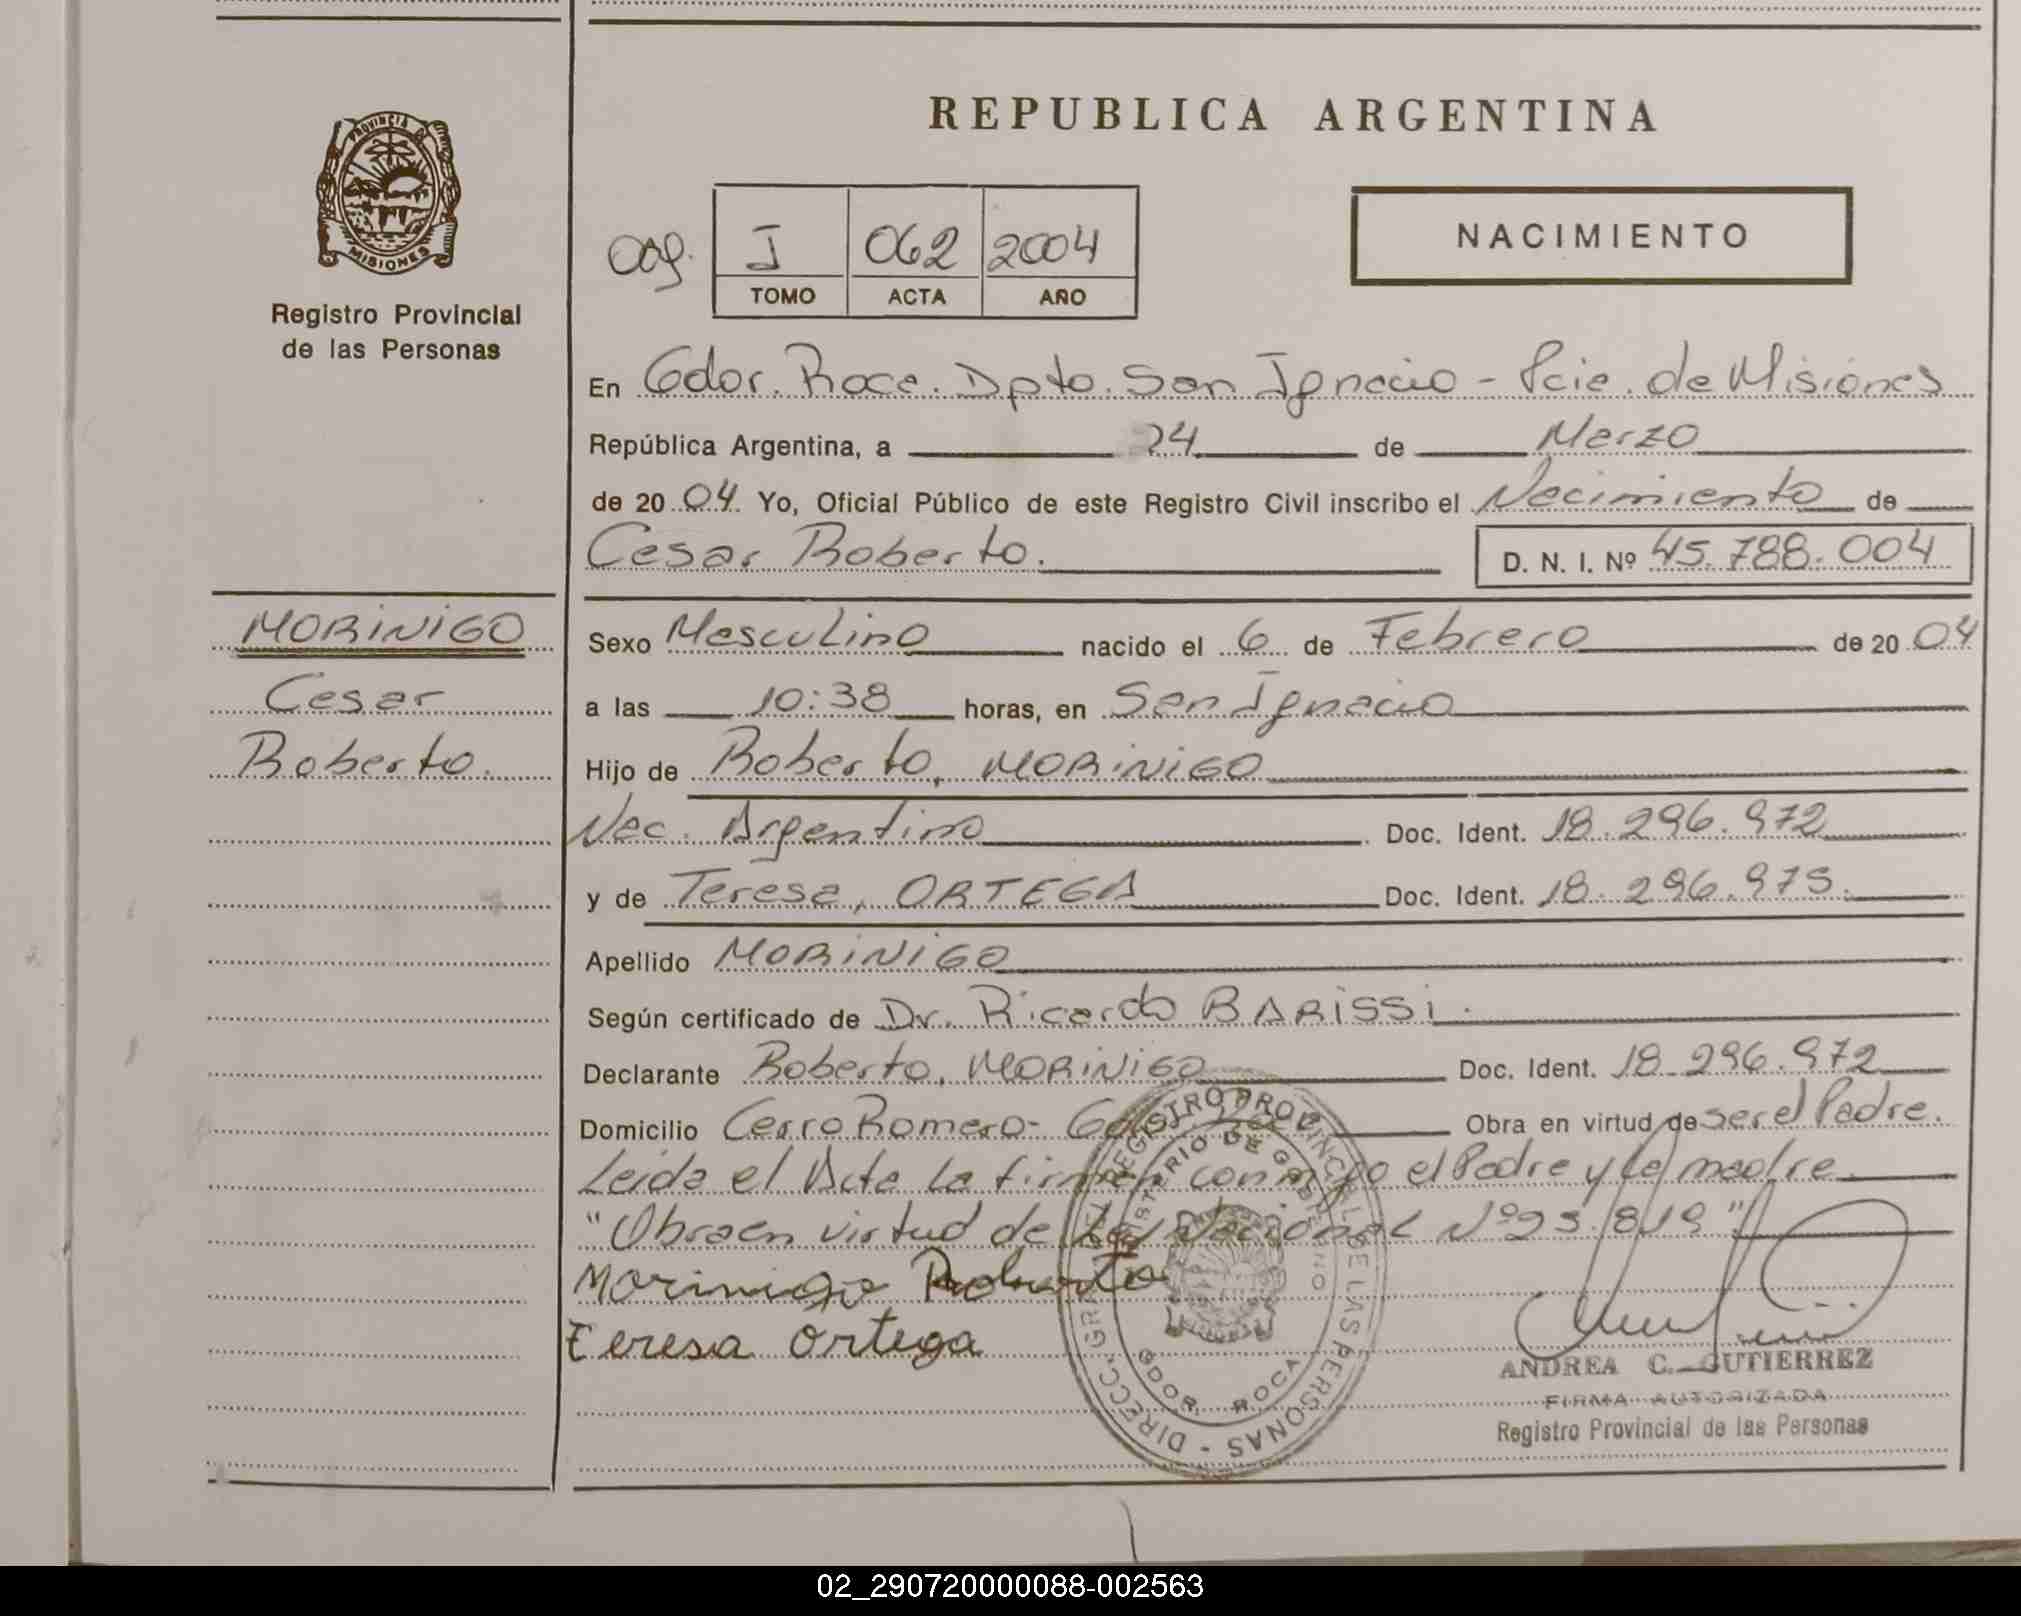 REPUBLICA ARGENTINA
PROVINCIA DE MISIONES
Registro Provincial
de las Personas
J 062 2004
TOMO ACTA AÑO
NACIMIENTO
En Gdor. Roca. Dpto. San Ignacio - Pcia. de Misiones
República Argentina, a 24 de Marzo
de 2004 Yo, Oficial Público de este Registro Civil inscribo el Nacimiento de
Cesar Roberto. D. N. I. Nº 45.788.004
MORINIGO
Cesar
Roberto.
Sexo Masculino nacido el 6 de Febrero de 2004
a las 10:38 horas, en San Ignacio
Hijo de Roberto, MORINIGO
Nac. Argentino Doc. Ident. 18.296.972
y de Teresa, ORTEGA Doc. Ident. 18.296.975.
Apellido MORINIGO
Según certificado de Dr. Ricardo BARISSI.
Declarante Roberto, MORINIGO Doc. Ident. 18.296.972
Domicilio Cerro Romero - Gdor. Roca Obra en virtud de ser el Padre.
Leida el Acta la firman conmigo el Padre y la madre
"Obra en virtud de Ley Nacional Nº 25.819"
Morinigo Roberto
Teresa Ortega
REGISTRO PROVINCIAL DE LAS PERSONAS
MINISTERIO DE GOBIERNO
GDOR. ROCA
ANDREA C. GUTIERREZ
FIRMA AUTORIZADA
Registro Provincial de las Personas
02_290720000088-002563